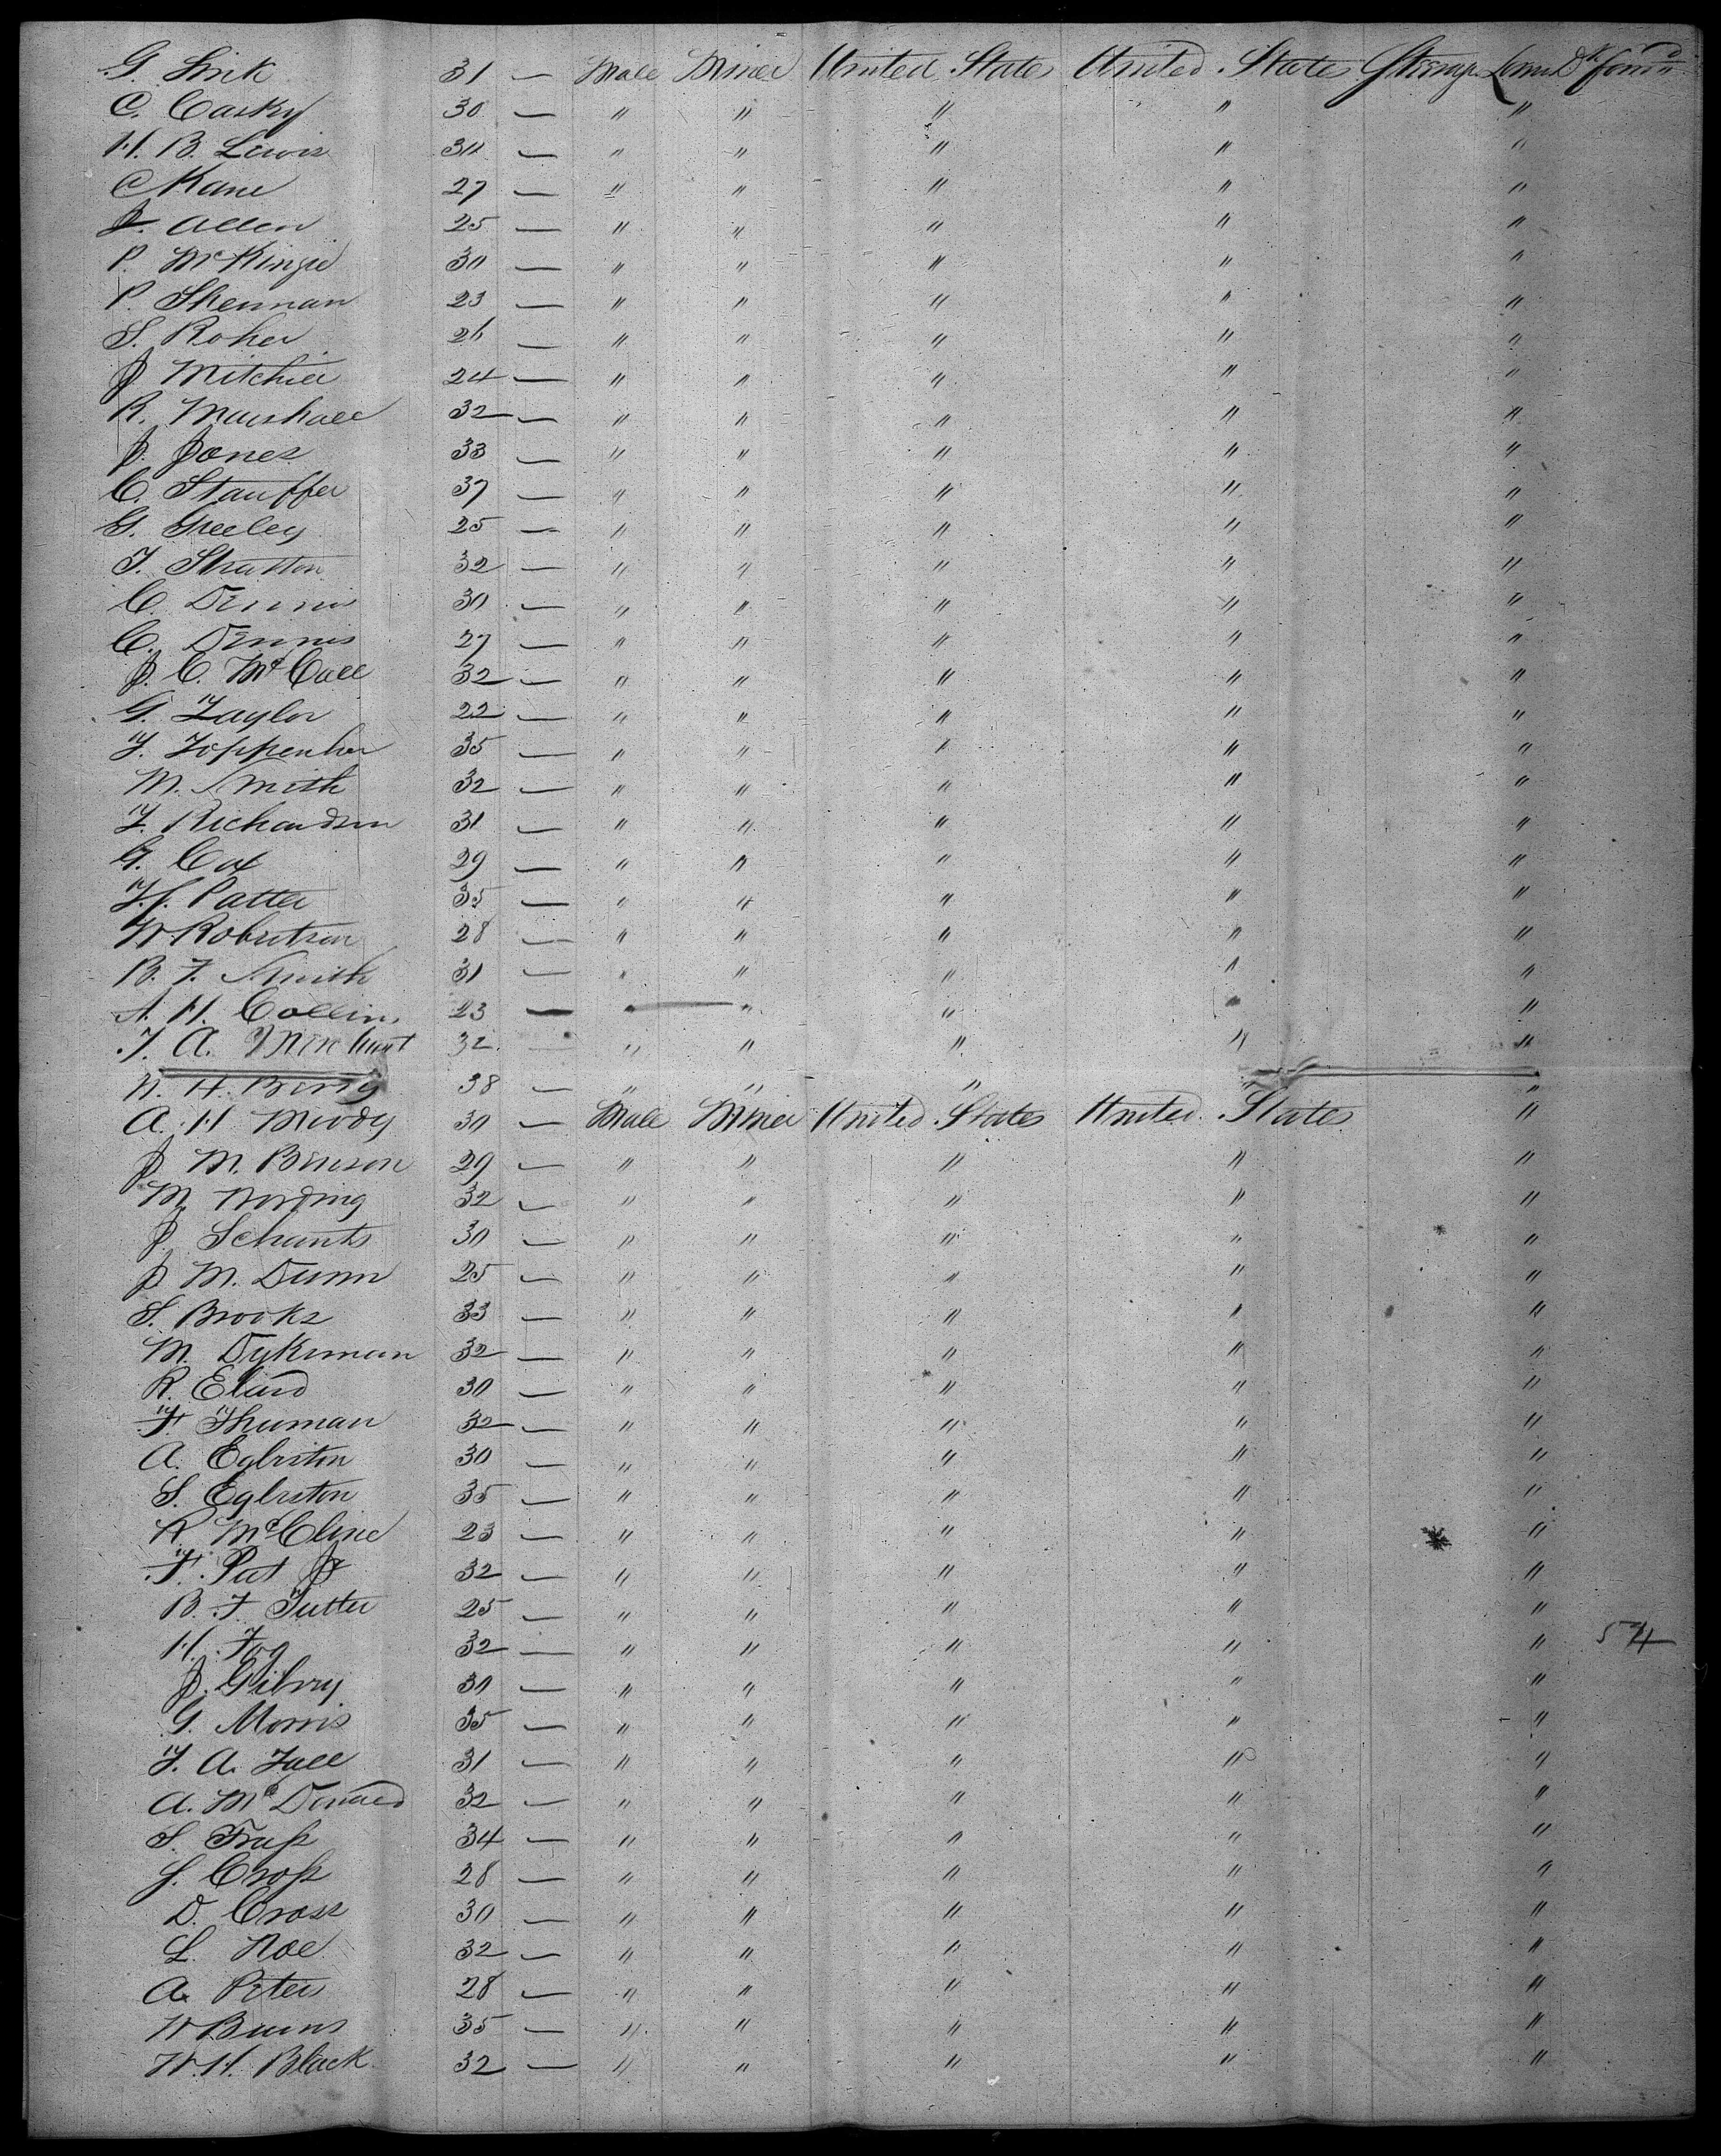 G. Sink 31 — Male Miner United States United States Steerage Lower Dk forwd
C. Casky 30 — " " " " "
H. B. Lewis 34 — " " " " "
C Kane 27 — " " " " "
J. Allen 25 — " " " " "
P. McKinzie 30 — " " " " "
P. Sherman 23 — " " " " "
S. Roher 26 — " " " " "
J Mitchell 24 — " " " " "
R. Marshall 32 — " " " " "
J. Jones 33 — " " " " "
C. Stauffer 37 — " " " " "
G. Greeley 25 — " " " " "
T. Stratton 32 — " " " " "
C. Dennis 30 — " " " " "
C. Dennis 27 — " " " " "
J. C. McCall 32 — " " " " "
G. Taylor 22 — " " " " "
T. 35 — " " " " "
M. Smith 32 — " " " " "
T. Richardson 31 — " " " " "
G. Cox 29 — " " " " "
Patter 35 — " " " " "
W Robertson 28 — " " " " "
B. F. Smith 31 — " " " " "
A. H. Collins 23 — " " " " "
T. A. Merchant 32 — " " " " "
N. H. Berry 38 — " " " " "
A. H Moody 30 — Male Miner United States United States "
J M. Benson 29 — " " " " "
M Nording 32 — " " " " "
J. Schants 30 — " " " " "
J M. Dunn 25 — " " " " "
S. Brooks 33 — " " " " "
M. Dykeman 32 — " " " " "
R. Elard 30 — " " " " "
F Thuman 32 — " " " " "
A. Egleston 30 — " " " " "
S. Egleston 35 — " " " " "
R McCline 23 — " " " " "
F. Pat J 32 — " " " " "
B. F. Tutter 25 — " " " " "
H. Fog 32 — " " " " " 54
J. Gilvry 30 — " " " " "
G. Morris 35 — " " " " "
T. A. Tall 31 — " " " " "
A. McDonald 32 — " " " " "
S. Trass 34 — " " " " "
J. Cross 28 — " " " " "
D. Cross 30 — " " " " "
L. Noe 32 — " " " " "
A. Peters 28 — " " " " "
W Burns 35 — " " " " "
W. H. Black 32 — " " " " "